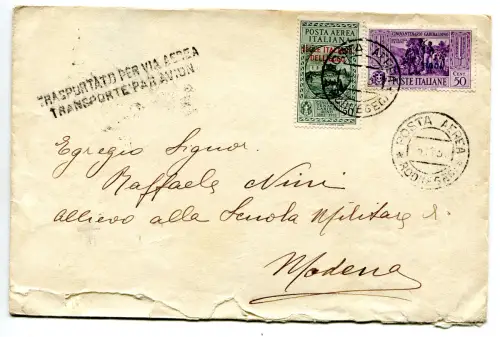 TRASPORTATO PER VIA AEREA
TRANSPORTÉ PAR AVION
POSTA AEREA
ITALIANA
ISOLE ITALIANE
DELL'EGEO
CINQUANTENARIO GARIBALDINO
POSTE ITALIANE
CENT. 50
POSTA AEREA
RODI (EGEO)
POSTA AEREA
RODI (EGEO)
Egregio Signor.
Raffaele Nini
allievo alla Scuola Militare di
Modena